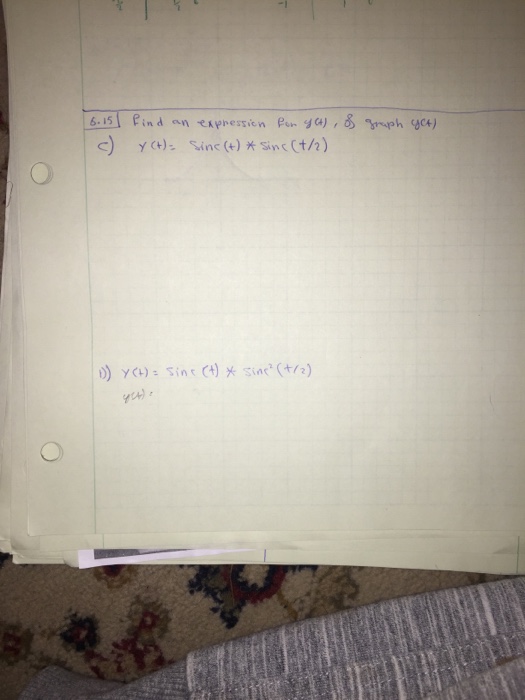 6.15 Find an expression for y(t), & graph y(t)
c) y(t) = sinc(t) * sinc(t/2)
D) y(t) = sinc(t) * sinc²(t/2)
y(t) =